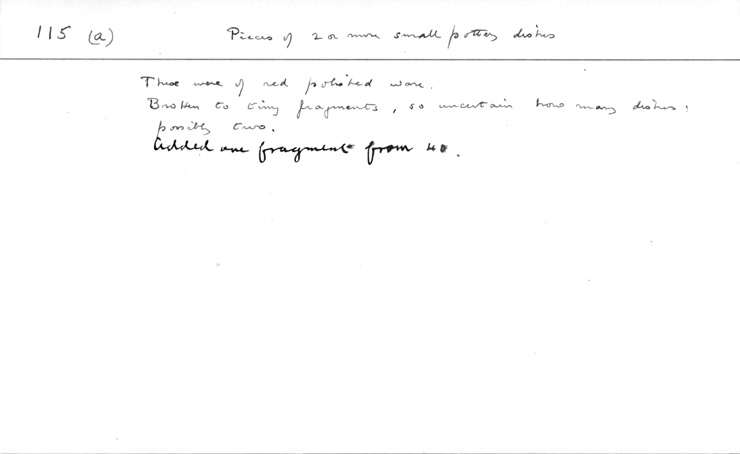 115 (a) Pieces of 2 or more small pottery dishes
These were of red polished ware.
Broken to tiny fragments, so uncertain how many dishes:
possibly two.
Added one fragment from 40.